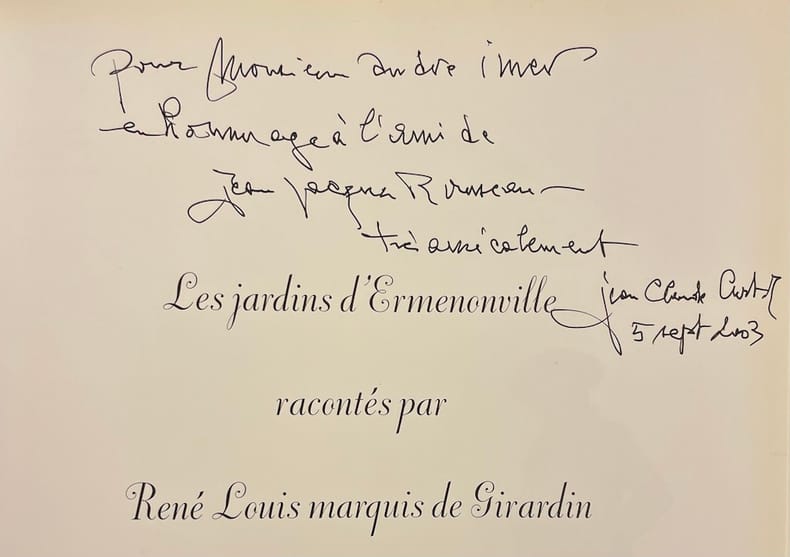 pour Monsieur andré imer
en hommage à l'ami de
jean jacques Rousseau
très amicalement
jean Claude
5 sept 2003
Les jardins d'Ermenonville
racontés par
René Louis marquis de Girardin